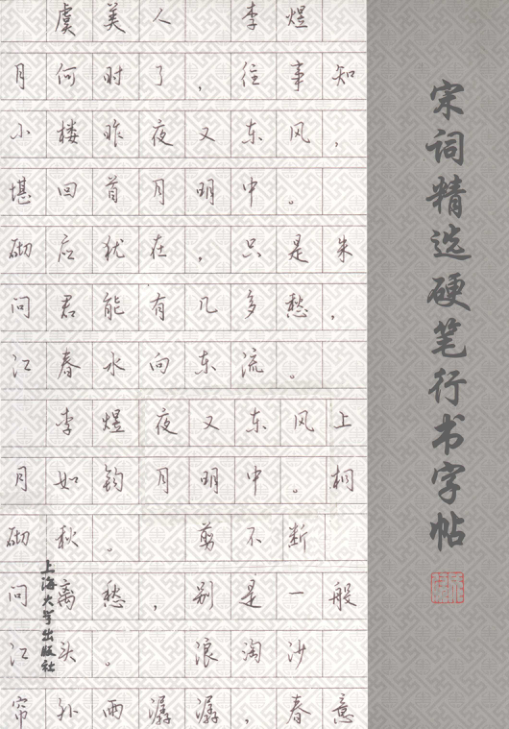 虞美人 李煜
月何时了，往事知
小楼昨夜又东风，
堪回首月明中。
砌后犹在，只是朱
问君能有几多愁，
江春水向东流。
李煜夜又东风上
月如钩月明中。桐
砌秋。 剪不断
问离愁，别是一般
江头。 浪淘沙
帘外雨潺潺，春意
宋词精选硬笔行书字帖
上海大学出版社